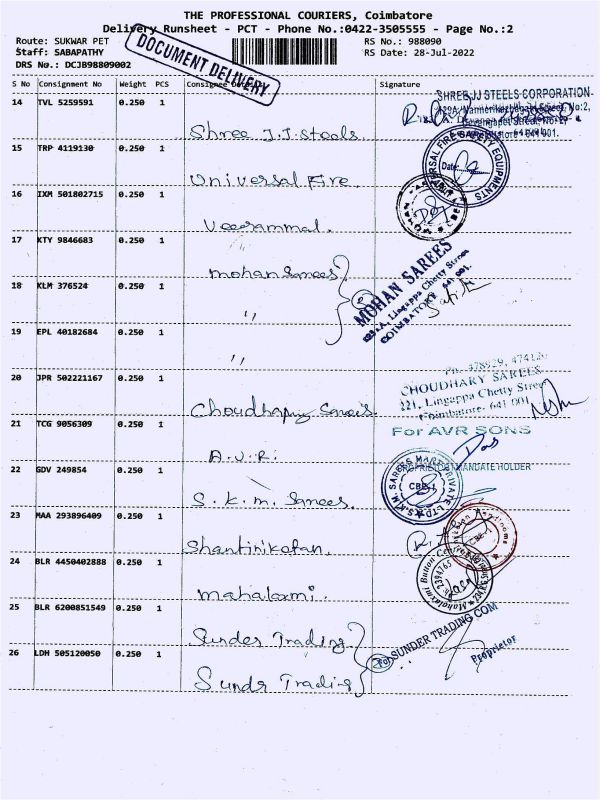 THE PROFESSIONAL COURIERS, Coimbatore
Delivery Runsheet - PCT - Phone No.:0422-3505555 - Page No.:2
Route: SUKWAR PET
RS No.: 988090
Staff: SABAPATHY
RS Date: 28-Jul-2022
DRS No.: DCJB98809002
DOCUMENT DELIVERY
S No Consignment No Weight PCS Consignee Signature
14 TVL 5259591 0.250 1
Shree J.J. Steels
SHREE JJ STEELS CORPORATION
15 TRP 4119130 0.250 1
Universal Fire
UNIVERSAL FIRE SAFETY EQUIPMENTS
Date:
16 IXM 501802715 0.250 1
Veerammal.
17 KTY 9846683 0.250 1
mohan Sarees
MOHAN SAREES
Lingappa Chetty Street
COIMBATORE 641 001.
18 KLM 376524 0.250 1
"
19 EPL 40182684 0.250 1
"
20 JPR 502221167 0.250 1
Choudhary Sarees.
CHOUDHARY SAREES
221, Lingappa Chetty Street
Coimbatore- 641 001
21 TCG 9056309 0.250 1
A.V.R.
For AVR SONS
MANDATE HOLDER
22 GDV 249854 0.250 1
S.K.M. Sarees.
S.K.M. SAREES MARK PRIVATE LTD
CBE-1
23 MAA 293896409 0.250 1
Shantinikatan.
24 BLR 4450402888 0.250 1
mahalaxmi.
Mahalaxmi Button Centre
2394765
25 BLR 6200851549 0.250 1
Sunder Trading
For SUNDER TRADING COM
Proprietor
26 LDH 505120050 0.250 1
Sundr Trading